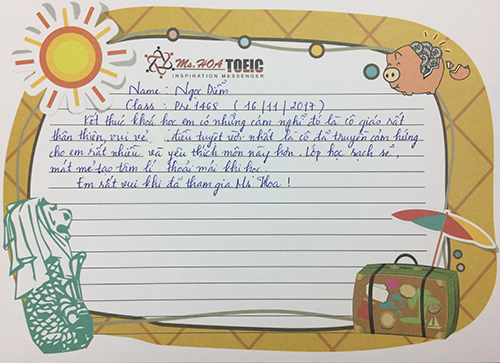 Ms.HOA TOEIC
INSPIRATION MESSENGER
Name : Ngọc Diễm
Class : Pre 1468 ( 16/11/2017)
Kết thúc khoá học em có những cảm nghĩ đó là cô giáo rất
thân thiện, vui vẻ, điều tuyệt vời nhất là cô đã truyền cảm hứng
cho em rất nhiều và yêu thích môn này hơn. Lớp học sạch sẽ,
mát mẻ tạo tâm lí thoải mái khi học.
Em rất vui khi đã tham gia Ms Hoa !